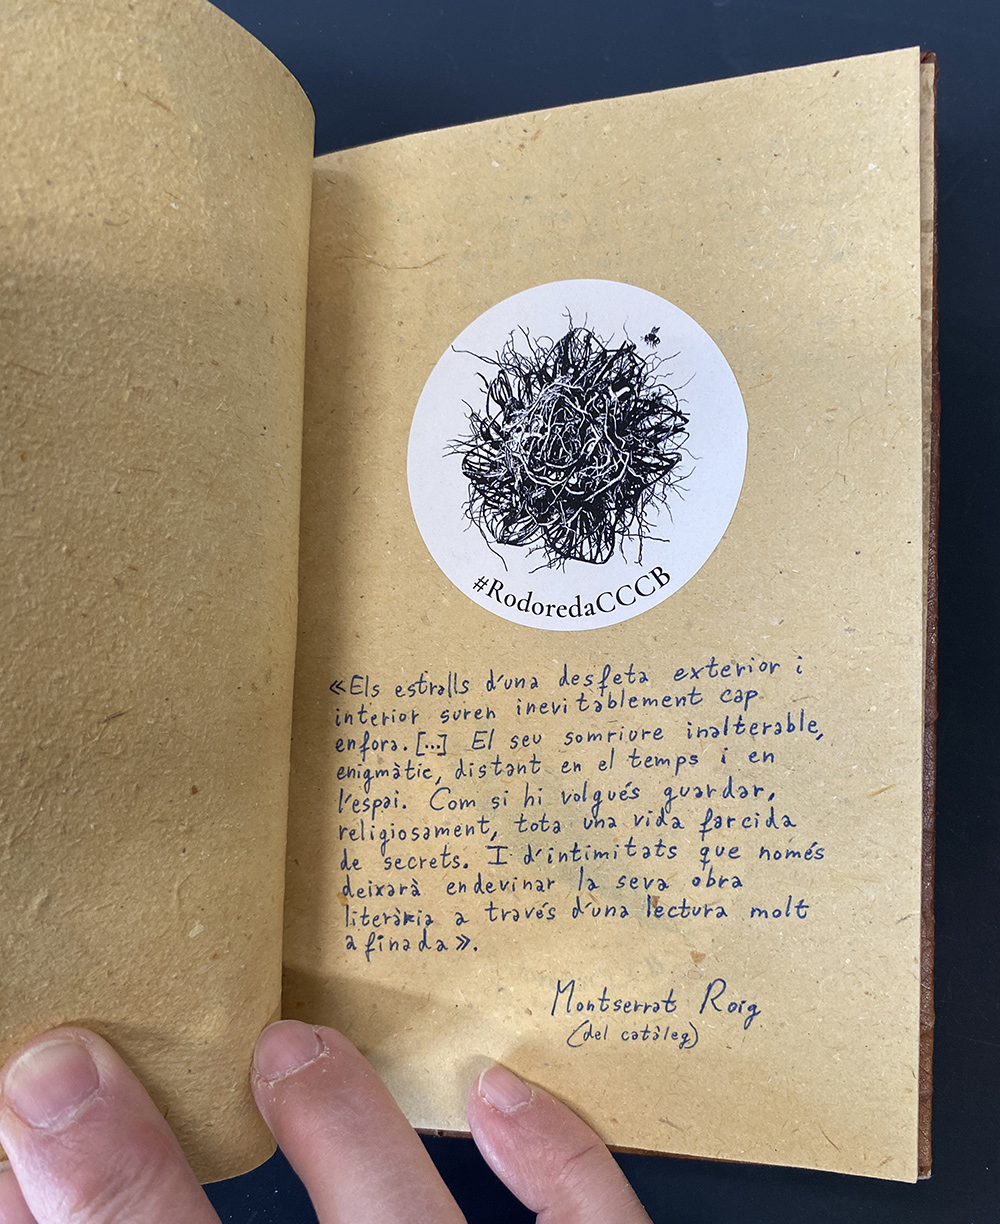 #RodoredaCCCB
«Els estralls d'una desfeta exterior i
interior suren inevitablement cap
enfora. [...] El seu somriure inalterable,
enigmàtic, distant en el temps i en
l'espai. Com si hi volgués guardar,
religiosament, tota una vida farcida
de secrets. I d'intimitats que només
deixarà endevinar la seva obra
literària a través d'una lectura molt
afinada».
Montserrat Roig
(del catàleg)